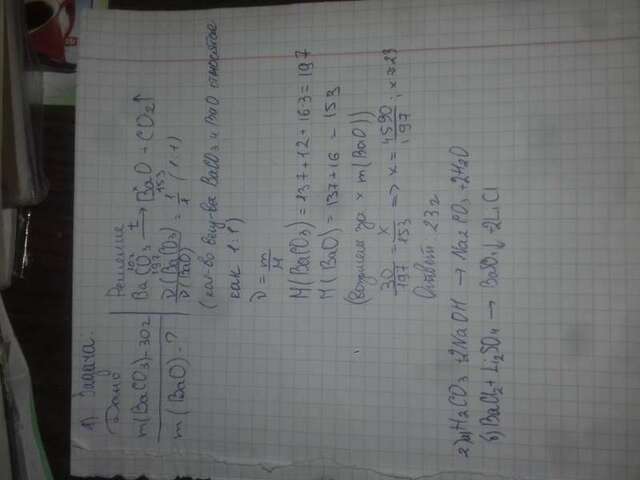 1) Задача.
Дано
m(BaCO3)-30г
m(BaO)-?
Решение
30г x
BaCO3 t→ BaO + CO2↑
197 153
ν(BaCO3)/ν(BaO) = 1/1 (1:1)
(кол-во вещ-ва BaCO3 и BaO относятся
как 1:1)
ν = m/M
M(BaCO3) = 137+12+16·3=197
M(BaO) = 137+16 = 153
(возьмем за x m(BaO))
30/197 = x/153 => x = 4590/197; x≈23
Ответ: 23г
2)а)H2CO3 +2NaOH → Na2CO3 +2H2O
б)BaCl2+Li2SO4 → BaSO4↓ +2LiCl